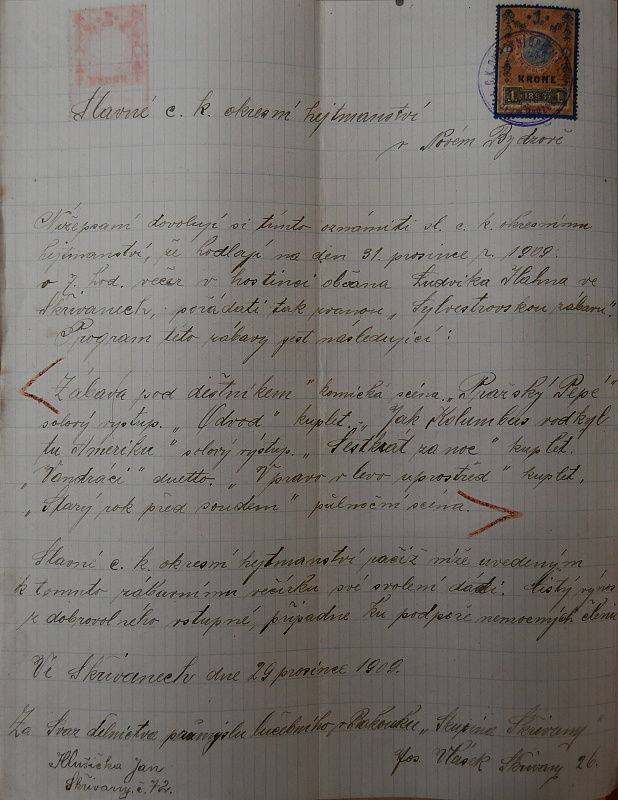 KRONE
1
KRONE
1 1898 1
Slavné c. k. okresní hejtmanství
v Novém Bydžově
Nížepsaní dovolují si tímto oznámiti sl. c. k. okresnímu
hejtmanství, že hodlají na den 31. prosince r. 1909.
o 7. hod. večer v hostinci občana Ludvíka Hahna ve
Skřivanech, pořádati tak zvanou „Sylvestrovskou zábavu".
Program této zábavy jest následující:
„Zábava pod deštníkem" komická scéna. „Pražský Pepé"
solový výstup. „Odvod" kuplet. „Jak Kolumbus vodkyl
tu Ameriku" solový výstup. „Šestkrát za noc" kuplet.
„Vandráci" duetto. „V pravo v levo uprostřed" kuplet.
„Starý rok před soudem" půlnoční scéna.
Slavní c. k. okresní hejtmanství račiž níže uvedeným
k tomuto zábavnímu večírku své svolení dáti. Čistý výnos
z dobrovolného vstupné, připadne ku podpoře nemocných členů
Ve Skřivanech dne 29 prosince 1909.
Za Svaz dělnictva průmyslu lučebního v Rakousku „Skupina Skřivany"
Klusička Jan
Skřivany. č. 72.
Jos. Vašek Skřivany 26.